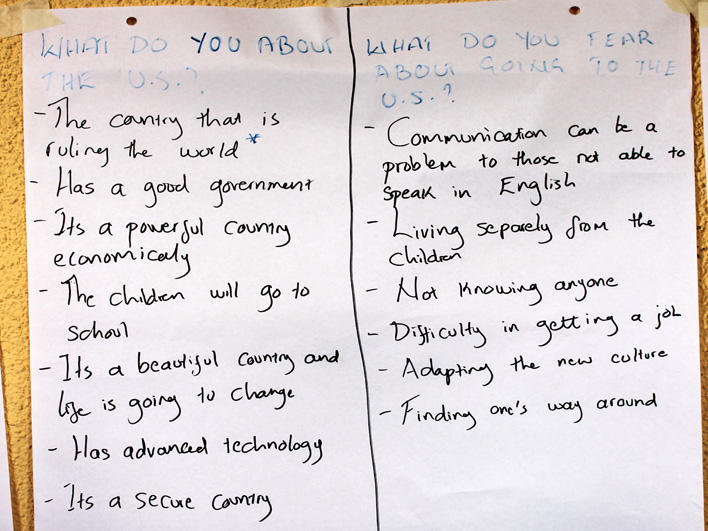 WHAT DO YOU ABOUT
THE U.S.?
- The country that is
ruling the world *
- Has a good government
- Its a powerful country
economically
- The children will go to
school
- Its a beautiful country and
life is going to change
- Has advanced technology
- Its a secure country
WHAT DO YOU FEAR
ABOUT GOING TO THE
U.S.?
- Communication can be a
problem to those not able to
speak in English
- Living separely from the
children
- Not knowing anyone
- Difficulty in getting a job
- Adapting the new culture
- Finding one's way around